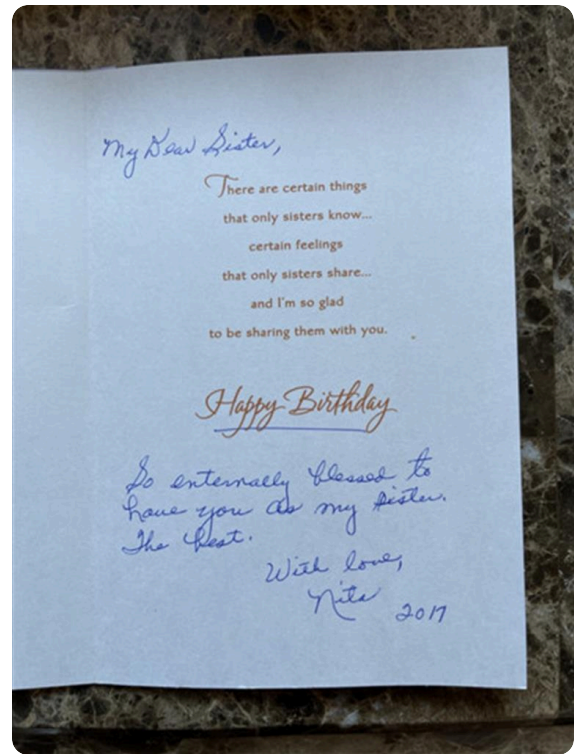 My Dear Sister,
There are certain things
that only sisters know...
certain feelings
that only sisters share...
and I'm so glad
to be sharing them with you.
Happy Birthday
So enternally blessed to
have you as my sister.
The best.
With love,
Nita
2017